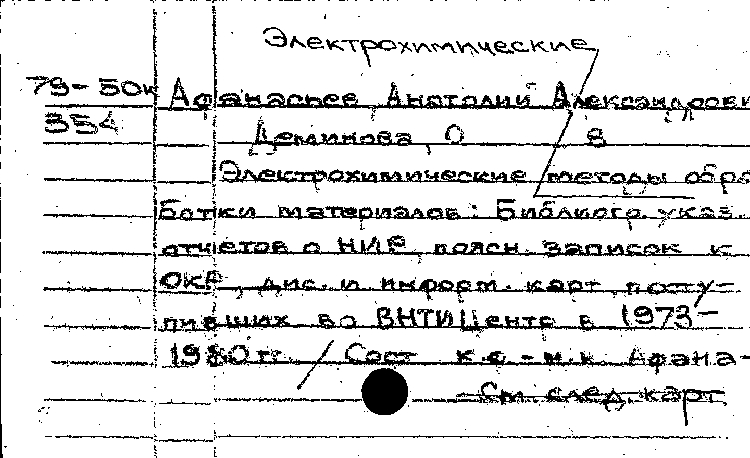 Электрохимические
79-50к Афанасьев, Анатолий Александрови
354 Деминова, О В
Электрохимические методы обра
ботки материалов: Библиогр. указ.
отчетов о НИР, поясн. записок к
ОКР, дис. и информ. карт, посту-
пивших во ВНТИЦентр в 1973-
1980 гг. / Сост. к.е.-м.н. Афана-
- См. след. карт.